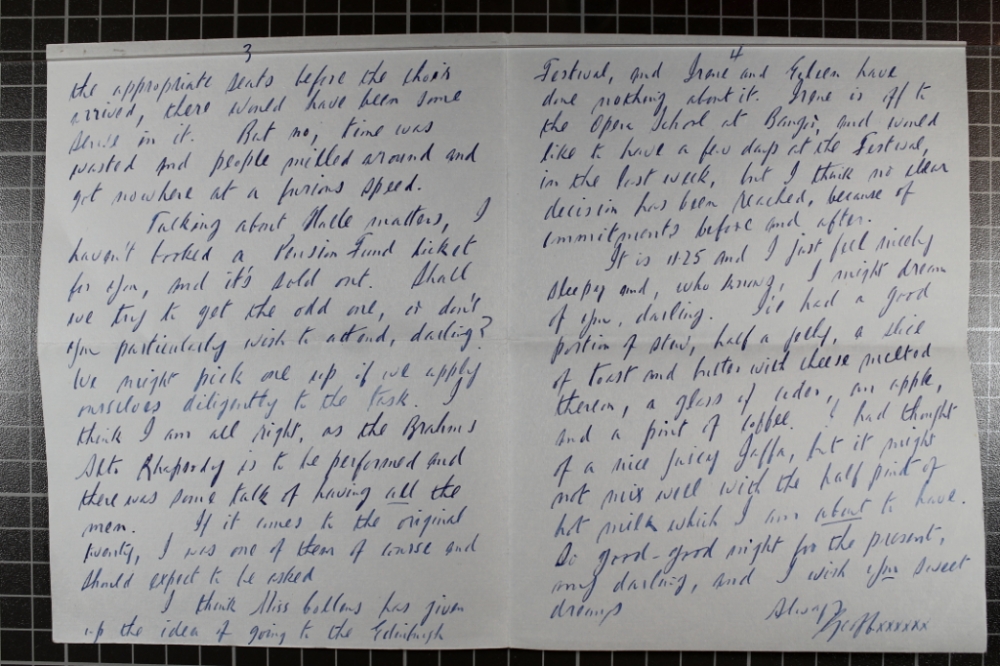 3
the appropriate seats before the choir
arrived, there would have been some
sense in it. But no, time was
wasted and people milled around and
got nowhere at a furious speed.
Talking about Halle matters, I
haven't booked a Pension Fund ticket
for you, and it's sold out. Shall
we try to get the odd one, or don't
you particularly wish to attend, darling?
We might pick one up if we apply
ourselves diligently to the task. I
think I am all right, as the Brahms
Alto Rhapsody is to be performed and
there was some talk of having all the
men. If it comes to the original
twenty, I was one of them of course and
should expect to be asked
I think Miss has given
up the idea of going to the Edinburgh
4
Festival, and Irene and Eileen have
done nothing about it. Irene is off to
the Opera School at Bangor, and would
like to have a few days at the Festival,
in the last week, but I think no clear
decision has been reached, because of
commitments before and after.
It is 11.25 and I just feel nicely
sleepy and, who knows, I might dream
of you, darling. I've had a good
portion of stew, half a jelly, a slice
of toast and butter with cheese melted
thereon, a glass of cider, an apple,
and a pint of coffee. I had thought
of a nice juicy Jaffa, but it might
not mix well with the half pint of
hot milk which I am about to have.
So good-good night for the present,
my darling, and I wish you sweet
dreams
Always
Geoff xxxxxx